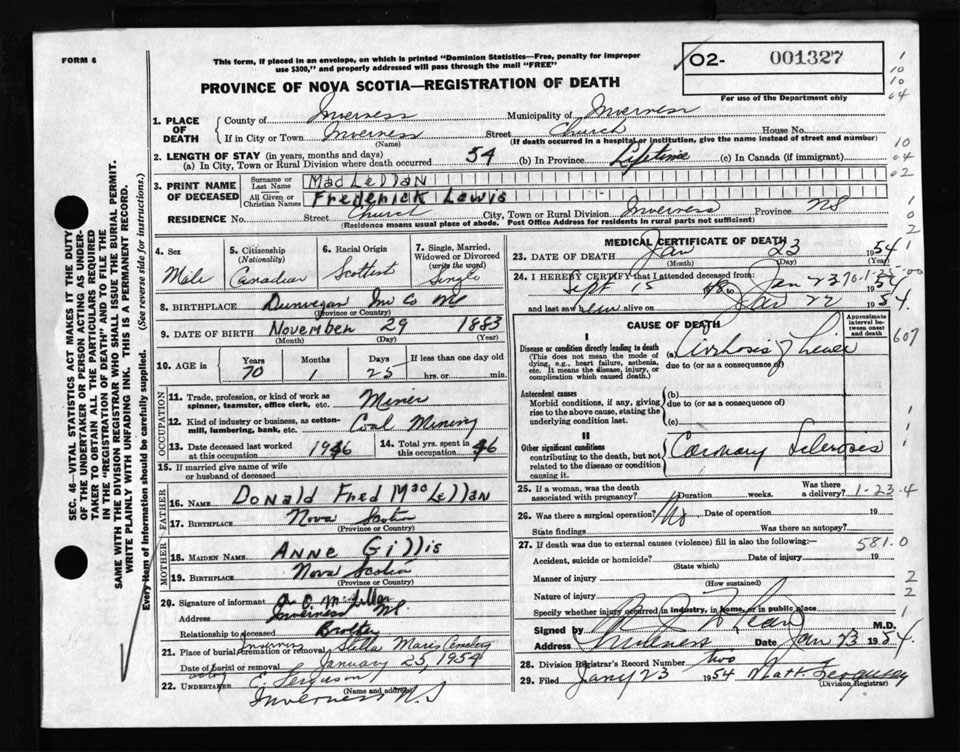 FORM 6
This form, if placed in an envelope, on which is printed "Dominion Statistics—Free, penalty for improper
use $300," and properly addressed will pass through the mail "FREE"
O2- 001327
For use of the Department only
PROVINCE OF NOVA SCOTIA—REGISTRATION OF DEATH
1. PLACE OF DEATH
County of Inverness Municipality of Inverness
If in City or Town Inverness Street Church House No.
(Name) (If death occurred in a hospital or institution, give the name instead of street and number)
2. LENGTH OF STAY (in years, months and days)
(a) In City, Town or Rural Division where death occurred 54 (b) In Province Lifetime (c) In Canada (if immigrant)
3. PRINT NAME OF DECEASED
Surname or Last Name MacLellan
All Given or Christian Names Frederick Lewis
RESIDENCE No. Street Church City, Town or Rural Division Inverness Province NS
(Residence means usual place of abode. Post Office Address for residents in rural parts not sufficient)
4. Sex Male
5. Citizenship (Nationality) Canadian
6. Racial Origin Scottish
7. Single, Married, Widowed or Divorced (write the word) Single
8. BIRTHPLACE Dunvegan Inv Co NS
(Province or Country)
9. DATE OF BIRTH November 29 1883
(Month) (Day) (Year)
10. AGE in Years 70 Months 1 Days 25 If less than one day old hrs. or min.
OCCUPATION
11. Trade, profession, or kind of work as spinner, teamster, office clerk, etc. Miner
12. Kind of industry or business, as cotton-mill, lumbering, bank, etc. Coal Mining
13. Date deceased last worked at this occupation 1946
14. Total yrs. spent in this occupation 46
15. If married give name of wife or husband of deceased
FATHER
16. NAME Donald Fred MacLellan
17. BIRTHPLACE Nova Scotia
(Province or Country)
MOTHER
18. MAIDEN NAME Anne Gillis
19. BIRTHPLACE Nova Scotia
(Province or Country)
20. Signature of informant
Address Inverness NS
Relationship to deceased Brother
21. Place of burial, cremation or removal Inverness Stella Maris Cemetery
Date of burial or removal January 25, 1954
22. UNDERTAKER acting E Ferguson
(Name and address)
Inverness N.S
MEDICAL CERTIFICATE OF DEATH
23. DATE OF DEATH Jan 23 1954
(Month) (Day) (Year)
24. I HEREBY CERTIFY that I attended deceased from:
Sept 15 to Jan 23 1954
and last saw alive on Jan 22 1954.
CAUSE OF DEATH
Approximate interval between onset and death
I
Disease or condition directly leading to death (a) Cirrhosis of Liver
(This does not mean the mode of dying, e.g., heart failure, asthenia, etc. It means the disease, injury, or complication which caused death.)
due to (or as a consequence of)
Antecedent causes (b)
Morbid conditions, if any, giving rise to the above cause, stating the underlying condition last.
due to (or as a consequence of)
(c)
II
Other significant conditions contributing to the death, but not related to the disease or condition causing it.
Coronary Sclerosis
25. If a woman, was the death associated with pregnancy? Duration weeks. Was there a delivery? 1-23-4
26. Was there a surgical operation? No Date of operation 19
State findings Was there an autopsy?
27. If death was due to external causes (violence) fill in also the following:— 581.0
Accident, suicide or homicide? Date of injury 19
(State which)
Manner of injury
(How sustained)
Nature of injury
Specify whether injury occurred in industry, in home, or in public place
Signed by M.D.
Address Inverness Date Jan 23 1954.
28. Division Registrar's Record Number two
29. Filed Jany 23 1954 Matt. Ferguson
(Division Registrar)
SEC. 46—VITAL STATISTICS ACT MAKES IT THE DUTY
OF THE UNDERTAKER OR PERSON ACTING AS UNDERTAKER
TO OBTAIN ALL THE PARTICULARS REQUIRED
IN THE "REGISTRATION OF DEATH" AND TO FILE THE
SAME WITH THE DIVISION REGISTRAR WHO SHALL ISSUE THE BURIAL PERMIT.
WRITE PLAINLY WITH UNFADING INK. THIS IS A PERMANENT RECORD.
Every item of information should be carefully supplied. (See reverse side for instructions.)
1
10
10
04
10
04
02
1
0
2
1
607
1
1
1
2
2
1